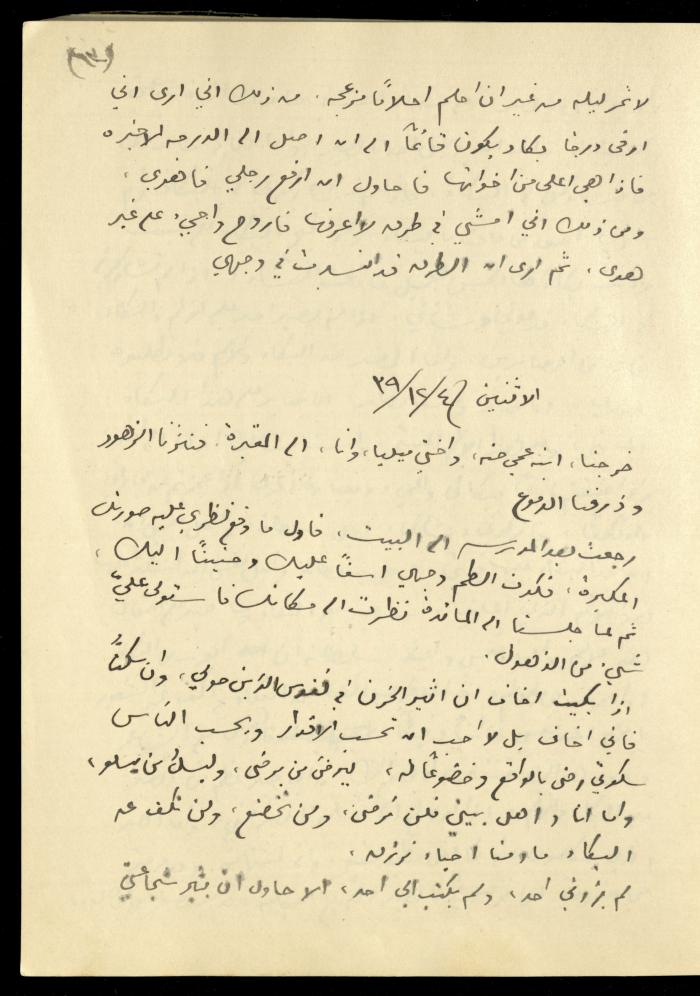 (٣)
لا تمر ليله من غير ان احلم احلامًا مزعجه. من ذلك اني ارى اني
ارقى درجا يكاد يكون قائمًا الى ان اصل الى الدرجه الاخيره
فاذا هي اعلى من اخواتها فاحاول ان ارفع رجلي فاهوي،
ومن ذلك اني امشي في طريق لا اعرفها فاروح واجيء على غير
هدى، ثم ارى ان الطريق قد انسدت في وجهي
الاثنين ٤/١٢/٣٩
خرجنا، ابنة عمي حنه، واختي ميليا، وانا، الى المقبرة. فنثرنا الزهور
وذرفنا الدموع
رجعت بعد المدرسه الى البيت، فاول ما وقع نظري عليه صورتك
المكبرة، فكدت الطم وجهي اسفًا عليك وحنينًا اليك،
ثم لما جلسنا الى المائدة نظرت الى مكانك فاستولى عليّ
شيء من الذهول.
اذا بكيت اخاف ان اثير الحزن في نفوس الذين حولي، وان سكتُّ
فاني اخاف بل لا احب ان تحسب الاقدار ويحسب الناس
سكوتي رضى بالواقع وخضوعًا له، ليرضَ من يرضى، وليسلُ من يسلو،
واما انا واهل بيتي فلن نرضى، ولن نخضع، ولن نكف عن
البكاء ما دمنا احياء نرزق.
لم يزرني احد، ولم يكتب الي احد، الا حاول ان يثير شجاعتي